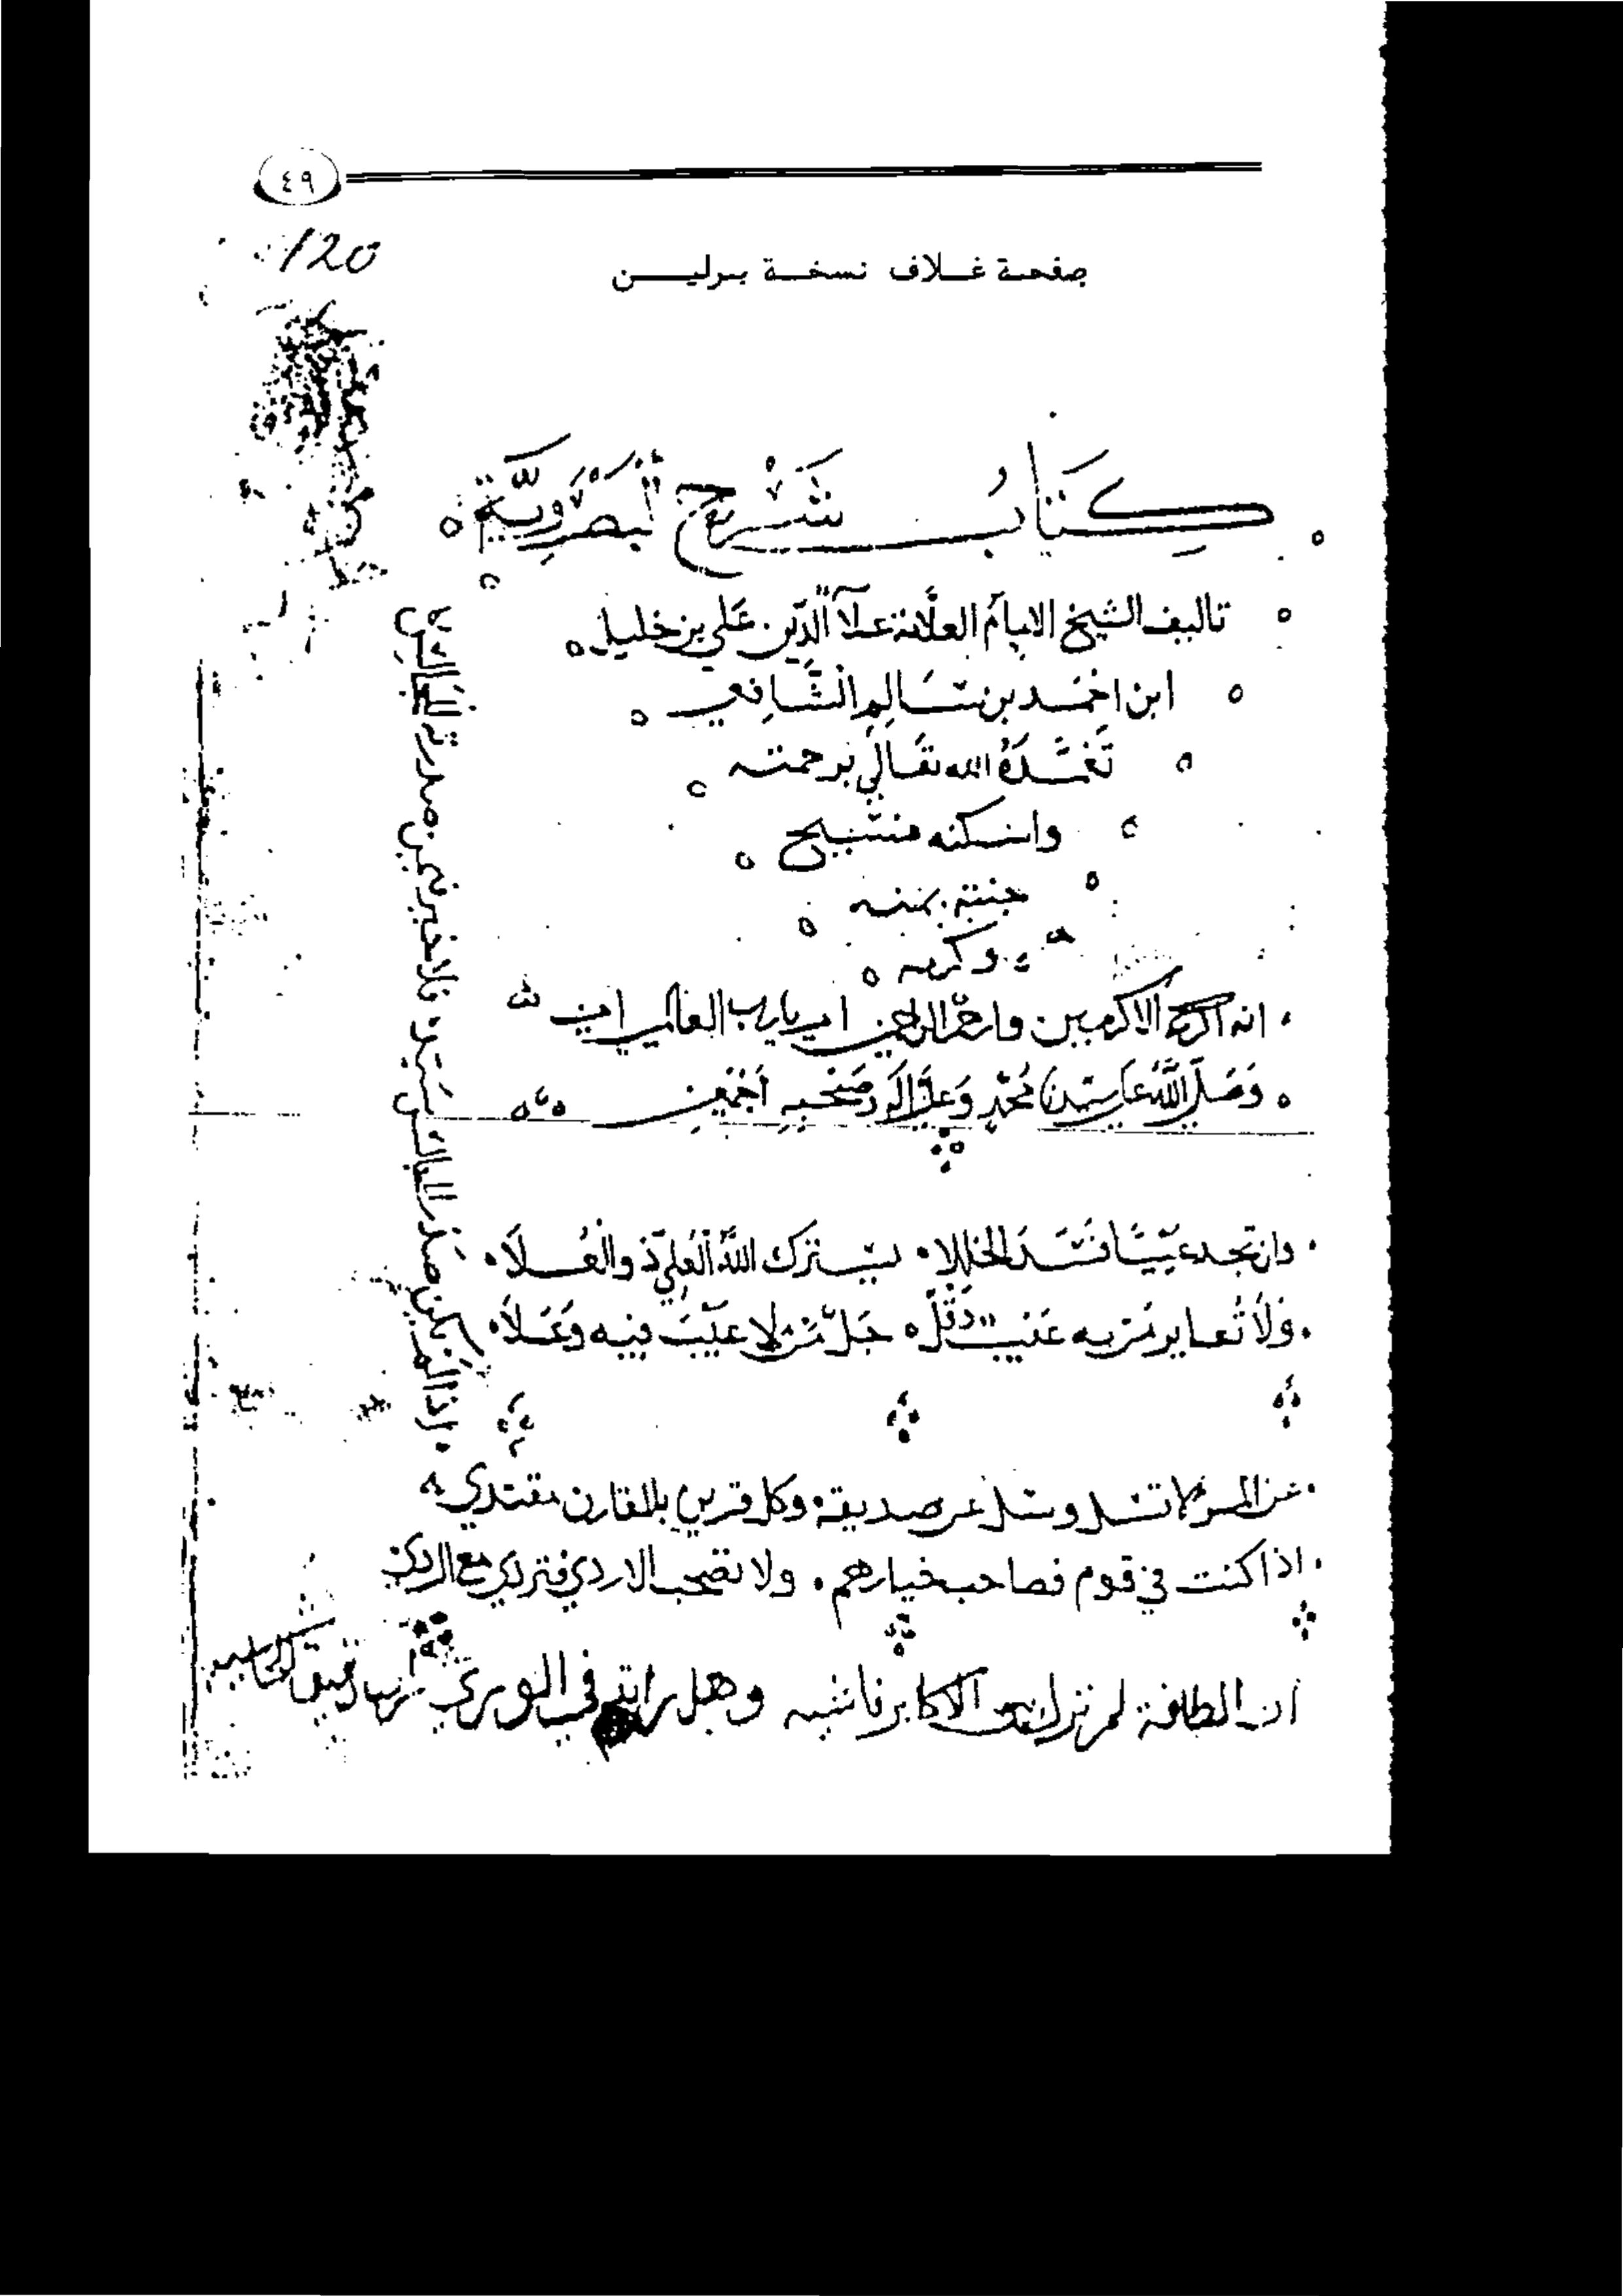 ٤٩
120
صفحة غلاف نسخة برلين
كتاب شرح البصروية
تاليف الشيخ الامام العلامة علا الدين علي بن خليل
ابن احمد بن سالم الشافعي
تغمده الله تعالى برحمته
واسكنه فسيح
جنته بمنه
وكرمه
انه اكرم الاكرمين وارحم الراحمين امين يارب العالمين امين
وصلى الله على سيدنا محمد وعلى اله وصحبه اجمعين
وان تجد عيبا فسد الخللا يسترك الله العلي ذو العلا
ولا تعاير من به عيب وقل جل من لا عيب فيه وعلا
عن المرء لا تسل وسل عن صديقه وكل قرين بالمقارن مقتدي
اذا كنت في قوم فصاحب خيارهم ولا تصحب الاردي فتردي مع الردي
ان اللطافة لم تزل بين الاكابر فاشيه وهل رايتم في الوري
اذا لم يكن صدر المجالس سيد فلا خير فيمن صدرته المجالس